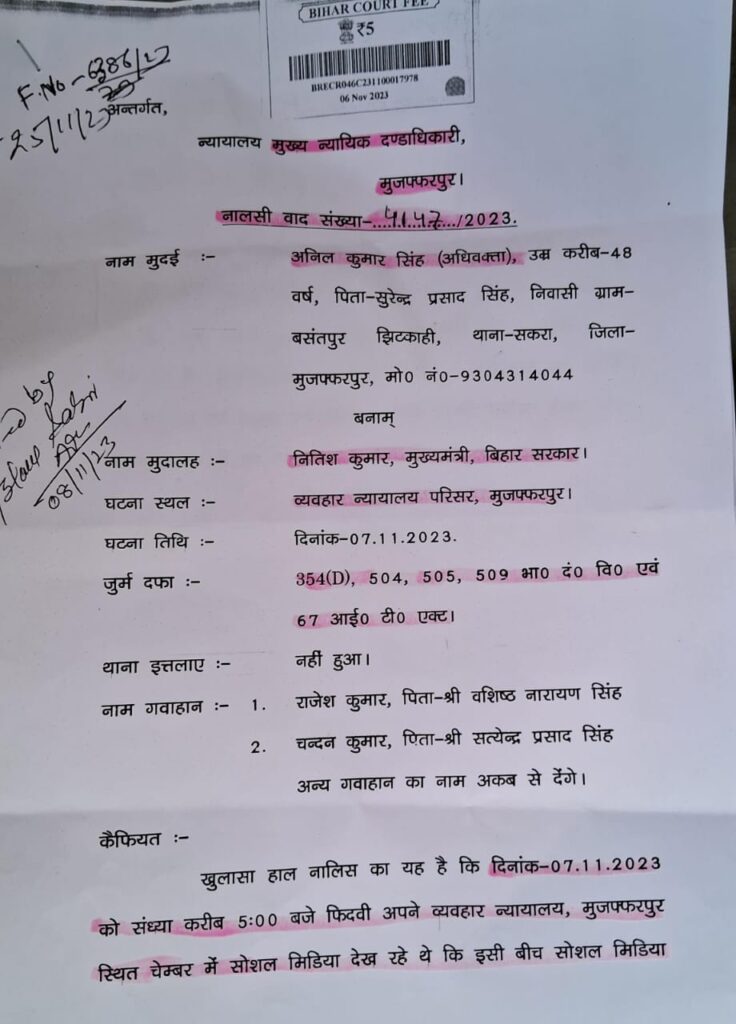 BIHAR COURT FEE
₹5
BRECR046C231100017978
06 Nov 2023
F.No-
25/11/23
अन्तर्गत,
न्यायालय मुख्य न्यायिक दण्डाधिकारी,
मुजफ्फरपुर।
नालसी वाद संख्या-....4147.../2023.
नाम मुदई :- अनिल कुमार सिंह (अधिवक्ता), उम्र करीब-48
वर्ष, पिता-सुरेन्द्र प्रसाद सिंह, निवासी ग्राम-
बसंतपुर झिटकाही, थाना-सकरा, जिला-
मुजफ्फरपुर, मो0 नं0-9304314044
बनाम्
by
08/11/23
नाम मुदालह :- नितिश कुमार, मुख्यमंत्री, बिहार सरकार।
घटना स्थल :- व्यवहार न्यायालय परिसर, मुजफ्फरपुर।
घटना तिथि :- दिनांक-07.11.2023.
जुर्म दफा :- 354(D), 504, 505, 509 भा0 दं0 वि0 एवं
67 आई0 टी0 एक्ट।
थाना इत्तलाए :- नहीं हुआ।
नाम गवाहान :- 1. राजेश कुमार, पिता-श्री वशिष्ठ नारायण सिंह
2. चन्दन कुमार, पिता-श्री सत्येन्द्र प्रसाद सिंह
अन्य गवाहान का नाम अकब से देंगे।
कैफियत :-
खुलासा हाल नालिस का यह है कि दिनांक-07.11.2023
को संध्या करीब 5:00 बजे फिदवी अपने व्यवहार न्यायालय, मुजफ्फरपुर
स्थित चेम्बर में सोशल मिडिया देख रहे थे कि इसी बीच सोशल मिडिया